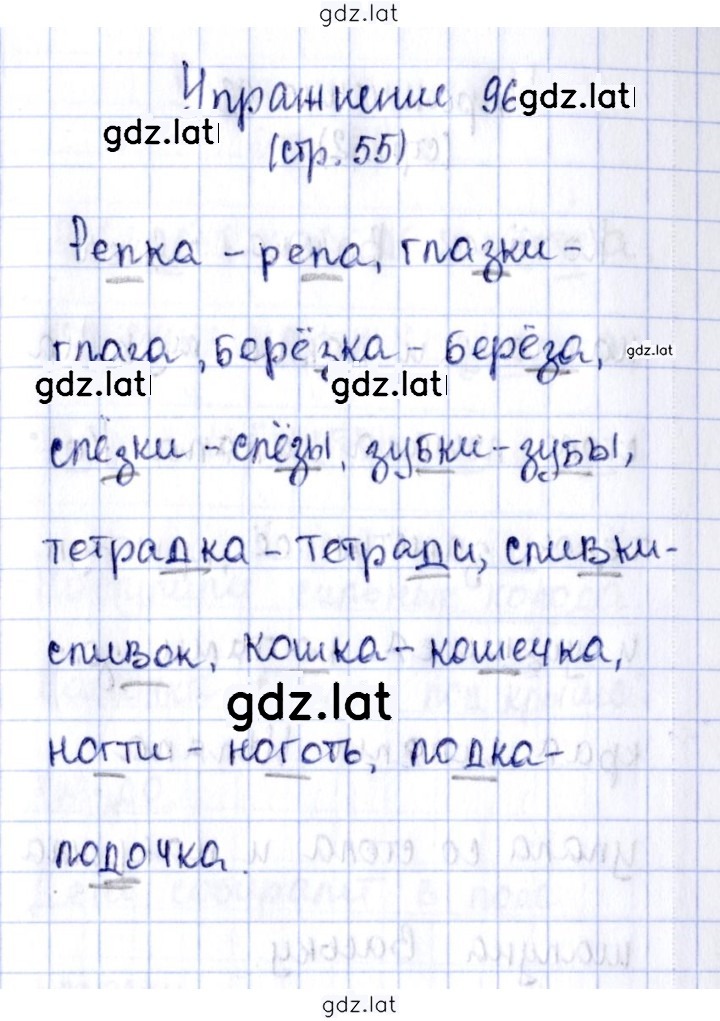 gdz.lat
Упражнение 96 gdz.lat
gdz.lat
(стр. 55)
Репка - репа, глазки -
глаза, берёзка - берёза, gdz.lat
gdz.lat gdz.lat
слёзки - слёзы, зубки - зубы,
тетрадка - тетради, сливки -
сливок, кошка - кошечка,
gdz.lat
ногти - ноготь, лодка -
лодочка.
gdz.lat